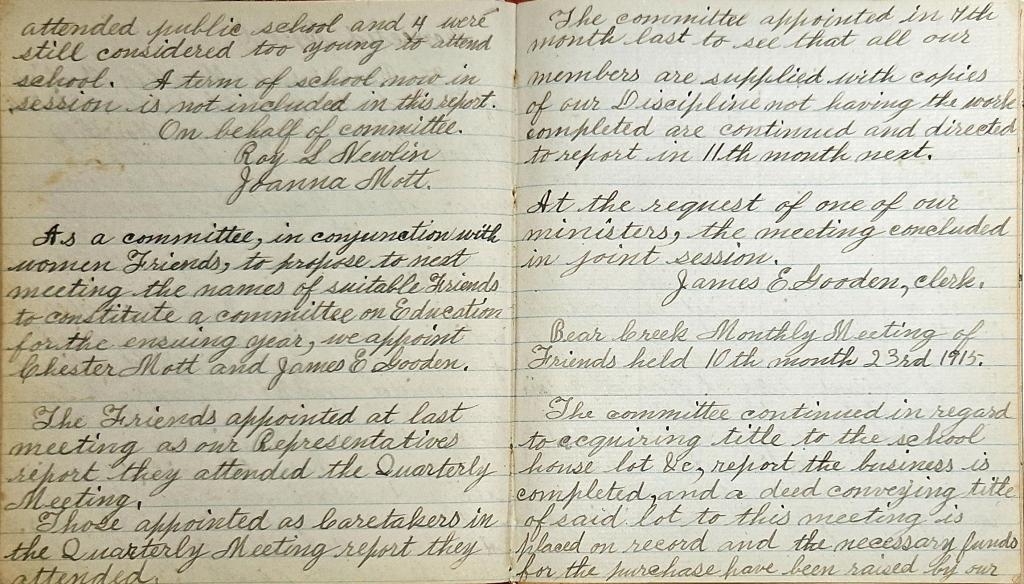 attended public school and 4 were
still considered too young to attend
school. A term of school now in
session is not included in this report.
On behalf of committee.
Roy L Newlin
Joanna Mott.
As a committee, in conjunction with
women Friends, to propose to next
meeting the names of suitable Friends
to constitute a committee on Education
for the ensuing year, we appoint
Chester Mott and James E Gooden.
The Friends appointed at last
meeting as our Representatives
report they attended the Quarterly
Meeting.
Those appointed as Caretakers in
the Quarterly Meeting report they
attended.
The committee appointed in 7th
month last to see that all our
members are supplied with copies
of our Discipline not having the work
completed are continued and directed
to report in 11th month next.
At the request of one of our
ministers, the meeting concluded
in joint session.
James E Gooden, clerk.
Bear Creek Monthly Meeting of
Friends held 10th month 23rd 1915.
The committee continued in regard
to acquiring title to the school
house lot &c, report the business is
completed, and a deed conveying title
of said lot to this meeting is
placed on record and the necessary funds
for the purchase have been raised by our